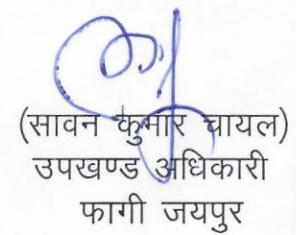 (सावन कुमार चायल)
उपखण्ड अधिकारी
फागी जयपुर